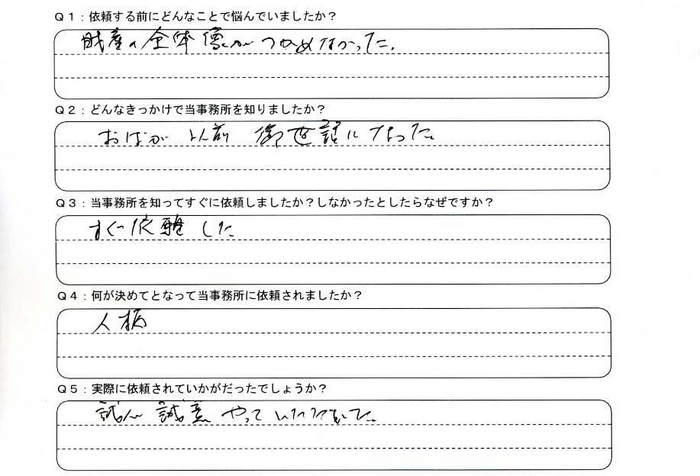 Q1:依頼する前にどんなことで悩んでいましたか?
財産の全体像がつかめなかった。
Q2:どんなきっかけで当事務所を知りましたか?
おばが以前御世話になった。
Q3:当事務所を知ってすぐに依頼しましたか?しなかったとしたらなぜですか?
すぐ依頼した
Q4:何が決めてとなって当事務所に依頼されましたか?
人柄
Q5:実際に依頼されていかがだったでしょうか?
誠心誠意やっていただいた。